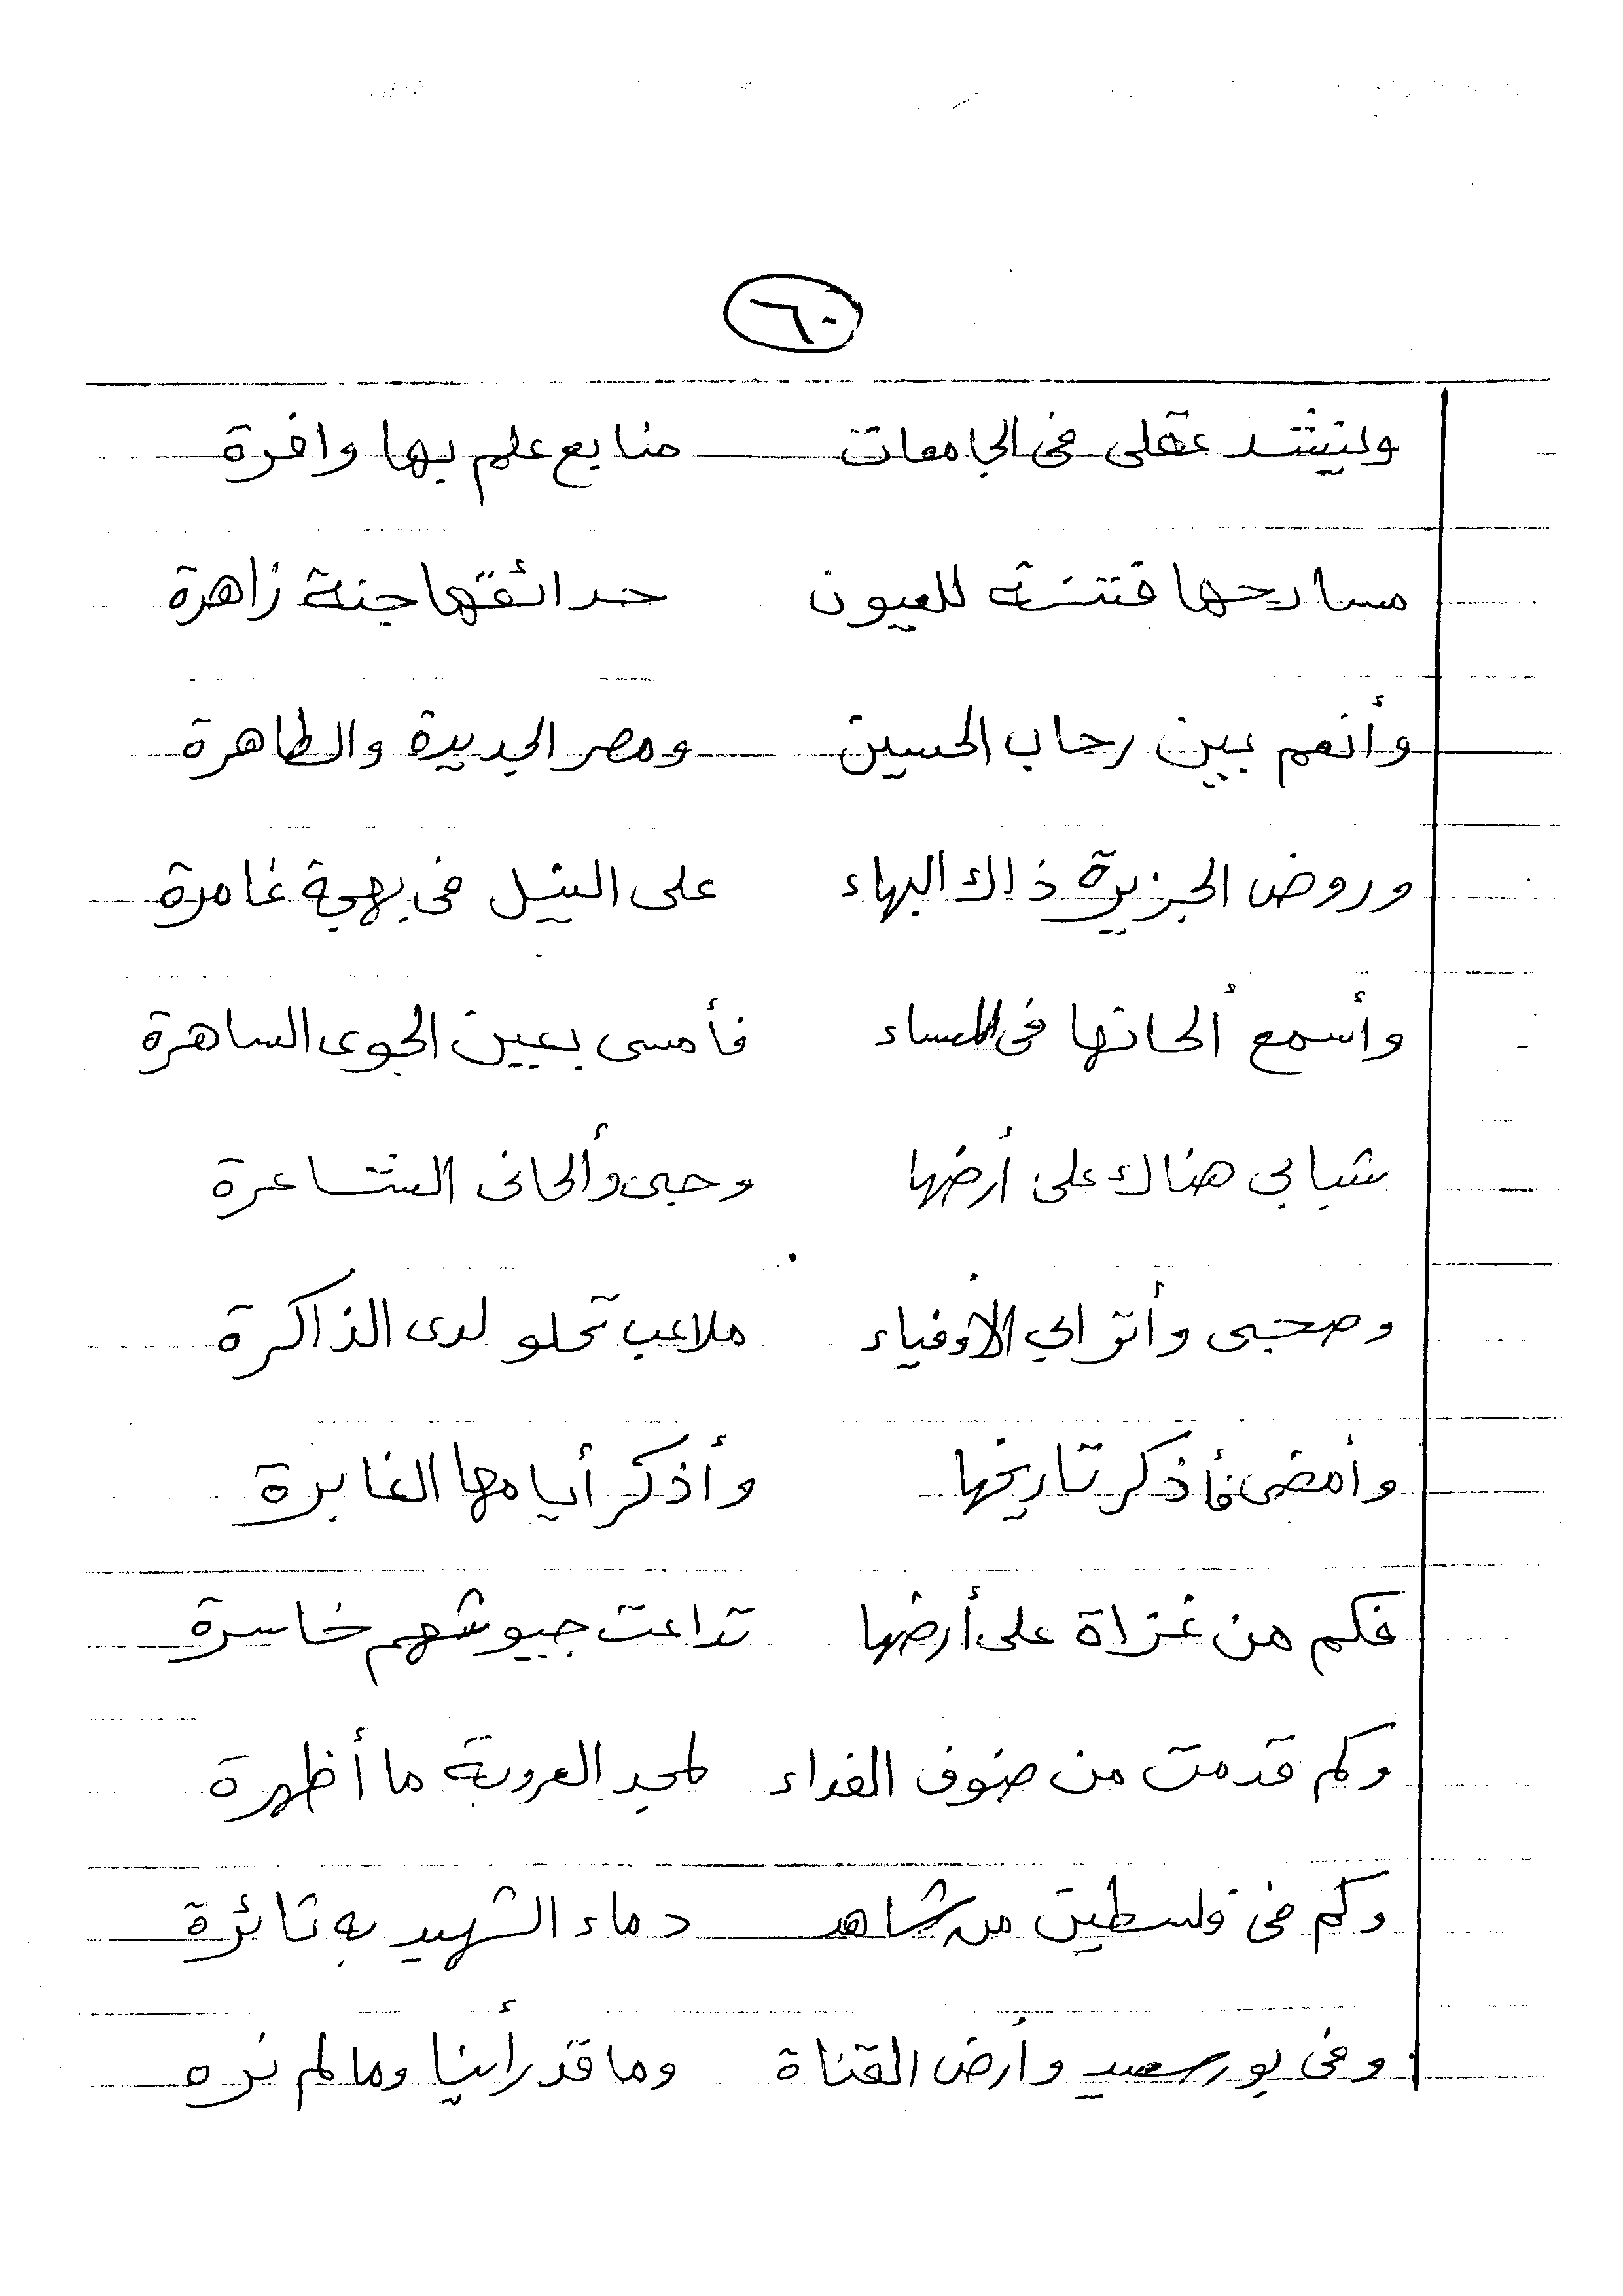 ٦٠
وينشد عقلى فى الجامعات منابع علم بها وافرة
مسارحها فتنة للعيون حدائقها جنة زاهرة
وأنعم بين رحاب الحسين ومصر الجديدة والطاهرة
وروض الجزيرة ذاك البهاء على النيل فى بهجة غامرة
وأسمع ألحانها فى المساء فأمسى بعين الجوى الساهرة
شبابى هناك على أرضها وحبى وألحانى الشاعرة
وصحبى وأترابي الأوفياء ملاعب تحلو لدى الذاكرة
وأمضى فأذكر تاريخها وأذكر أيامها الغابرة
فكم من غزاة على أرضها تداعت جيوشهم خاسرة
وكم قدمت من صنوف الفداء لمجد العروبة ما أظهرة
وكم فى فلسطين من شاهد دماء الشهيد به ثائرة
وفى بور سعيد وأرض القناة وما قد رأينا وما لم نره